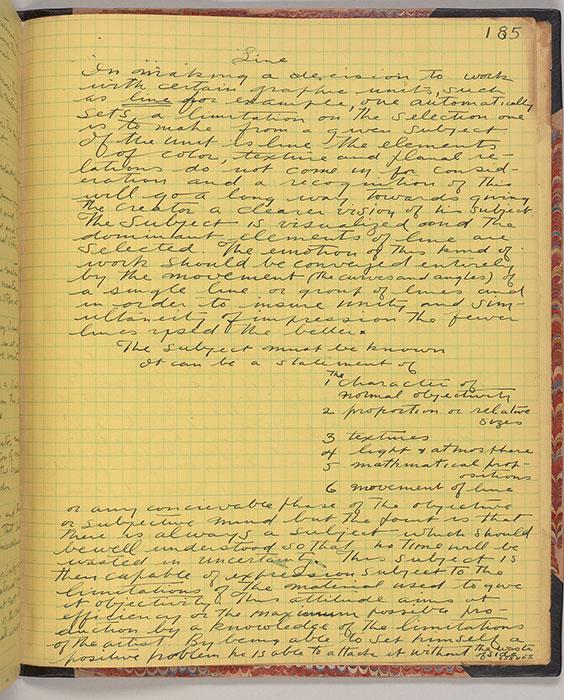 185
Line
In making a decision to work
with certain graphic units, such
as line for example, one automatically
sets a limitation on the selection one
is to make from a given subject
If the unit is line the elements
of color, texture and planal re-
lations do not come in for consid-
eration and a recognition of this
will go a long way towards giving
the creator a clearer vision of his subject
The subject is visualized and the
dominant elements of line are
selected The emotion of this kind of
work should be conveyed entirely
by the movement (the curves and angles) of
a single line or group of lines and
in order to insure unity and sim-
ultaneity of impression the fewer
lines used the better
The subject must be known
It can be a statement of
1 The character of
normal objectivity
2 proportion or relative
sizes
3 textures
4 light & atmosphere
5 mathmatical prop-
ositions
6 movement of line
or any concievable phase of the objective
or subjective mind but the point is that
there is always a subject which should
be well understood so that no time will be
wasted in uncertainty. This subject is
then capable of expression subject to the
limitations of the material used to give
it objectivity. This attitude aims at
efficiency or the maximum possible pro-
duction by a knowledge of the limitations
of the artist By being able to set himself a
positive problem he is able to attack it without the waste
of side issues